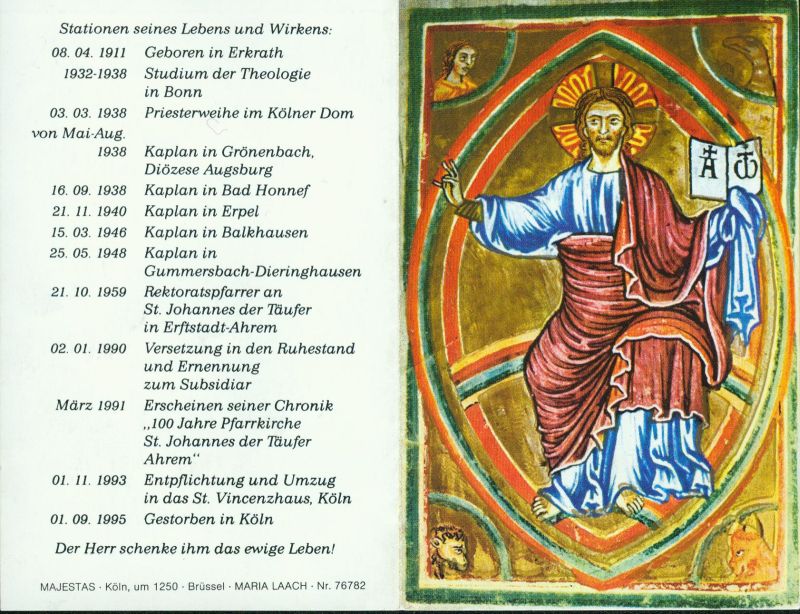 Stationen seines Lebens und Wirkens:
08. 04. 1911 Geboren in Erkrath
1932-1938 Studium der Theologie
in Bonn
03. 03. 1938 Priesterweihe im Kölner Dom
von Mai-Aug.
1938 Kaplan in Grönenbach,
Diözese Augsburg
16. 09. 1938 Kaplan in Bad Honnef
21. 11. 1940 Kaplan in Erpel
15. 03. 1946 Kaplan in Balkhausen
25. 05. 1948 Kaplan in
Gummersbach-Dieringhausen
21. 10. 1959 Rektoratspfarrer an
St. Johannes der Täufer
in Erftstadt-Ahrem
02. 01. 1990 Versetzung in den Ruhestand
und Ernennung
zum Subsidiar
März 1991 Erscheinen seiner Chronik
„100 Jahre Pfarrkirche
St. Johannes der Täufer
Ahrem“
01. 11. 1993 Entpflichtung und Umzug
in das St. Vincenzhaus, Köln
01. 09. 1995 Gestorben in Köln
Der Herr schenke ihm das ewige Leben!
MAJESTAS · Köln, um 1250 · Brüssel · MARIA LAACH · Nr. 76782
A ω